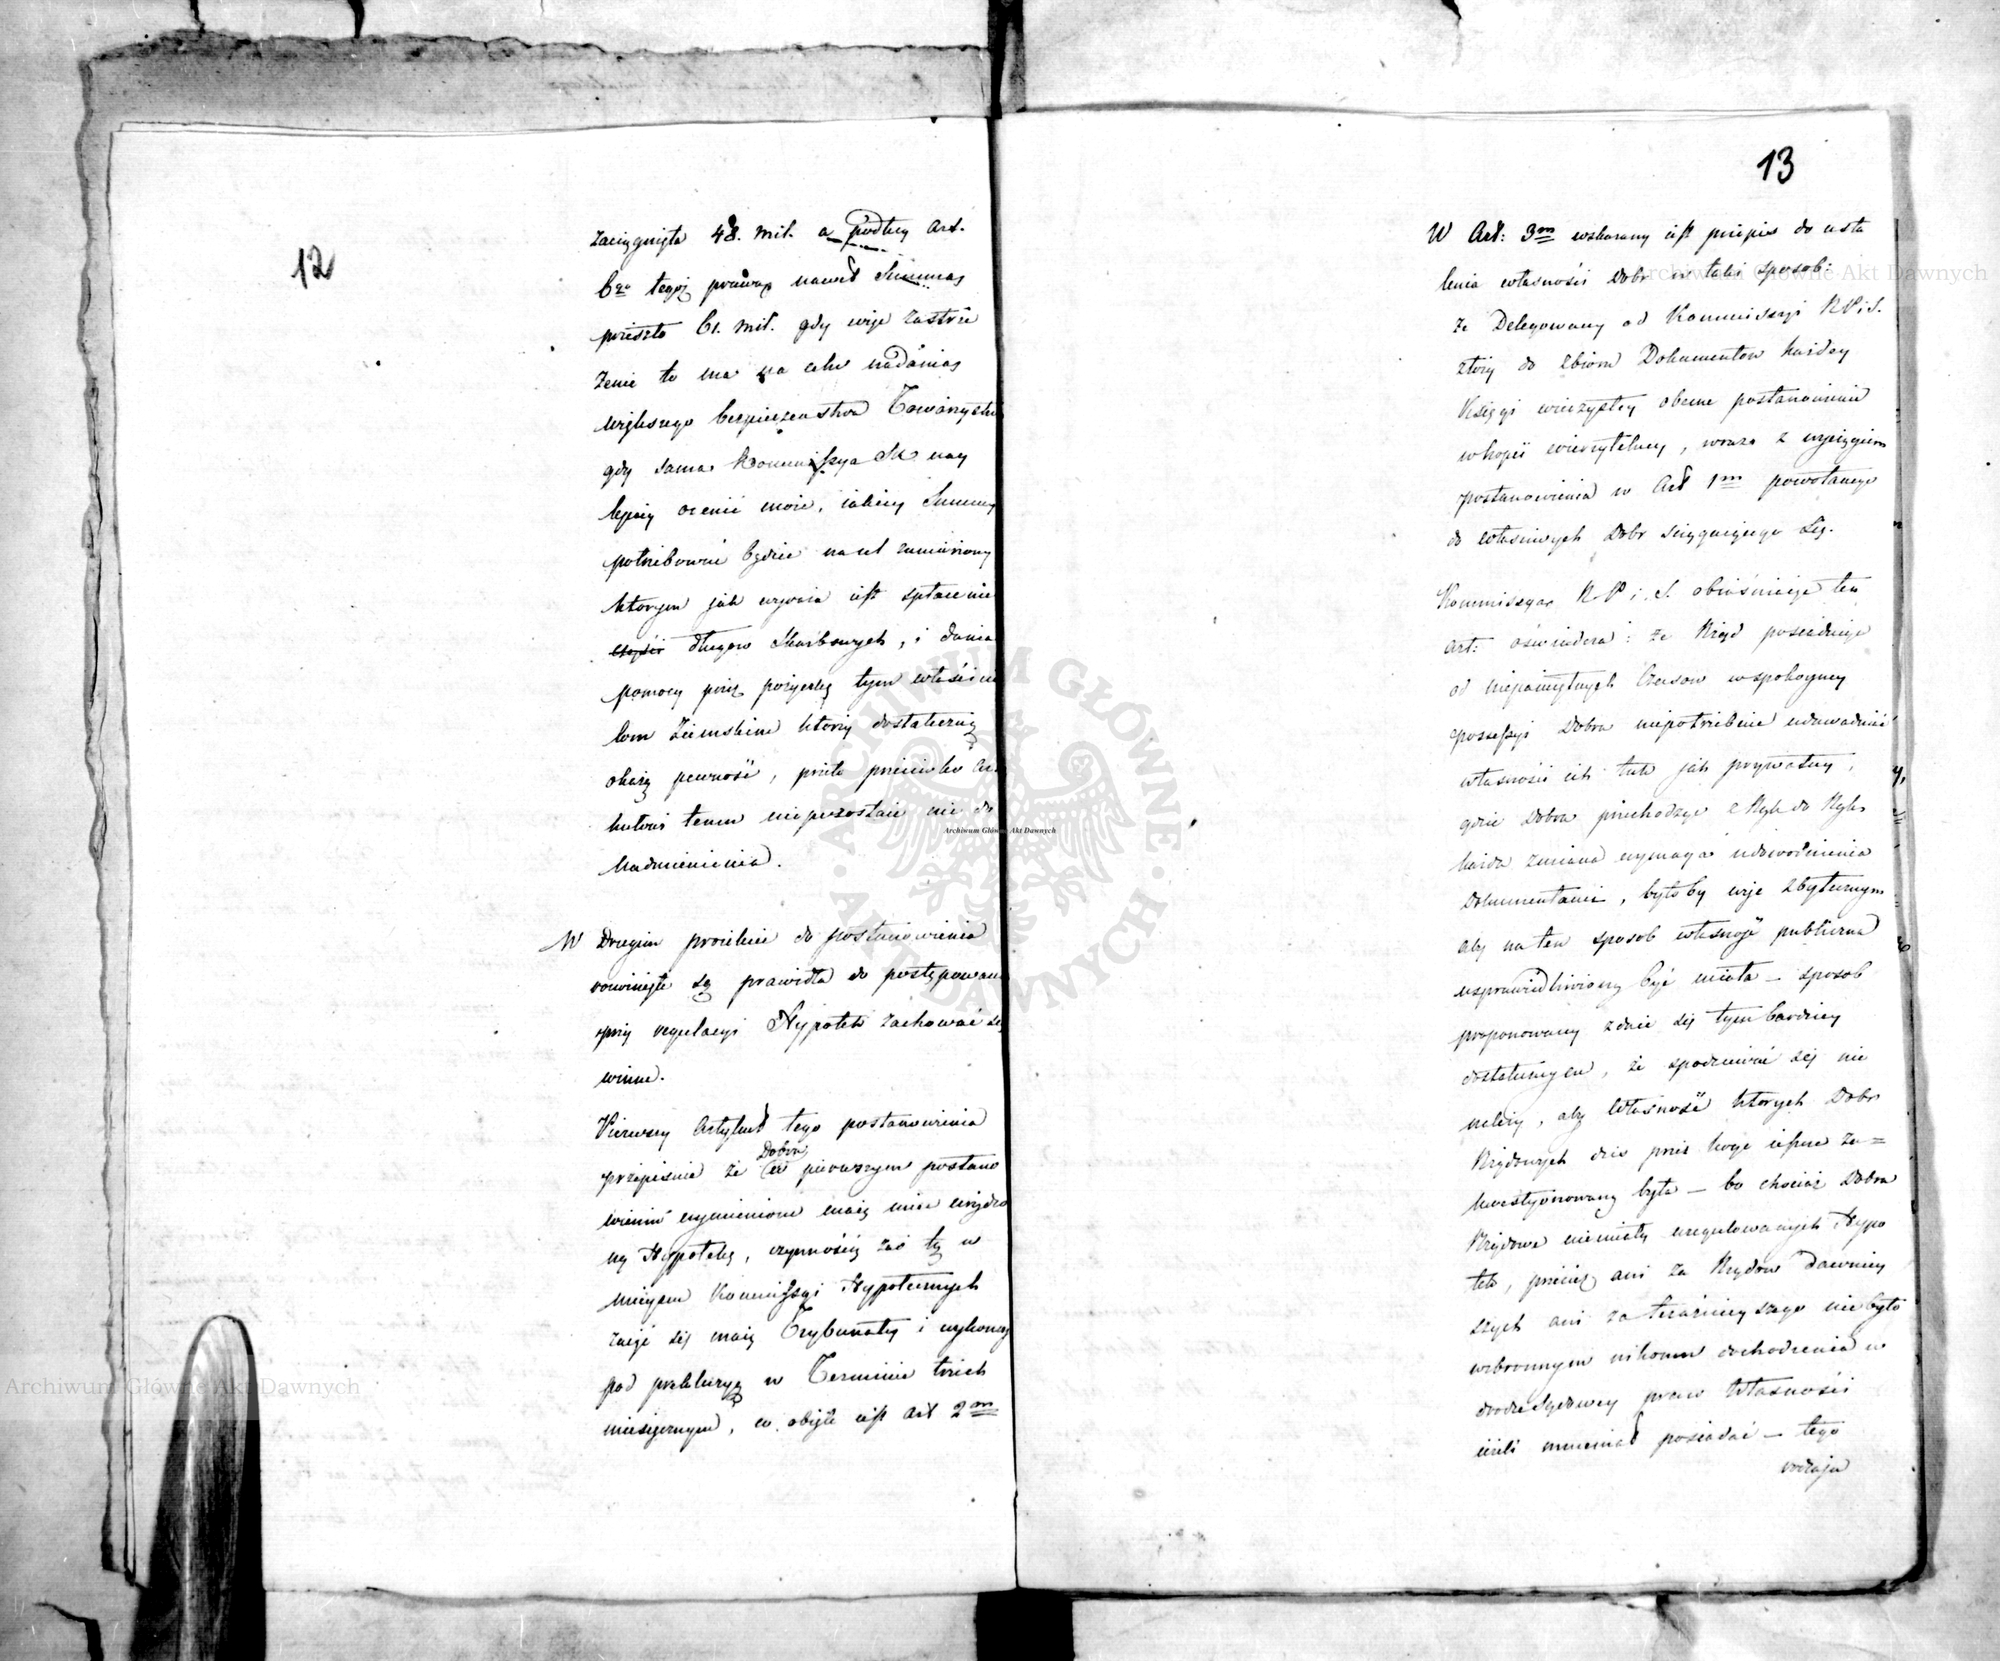 12
zaciągnięta 48. mil. a podług Art.
6go tegoż prawa nawet Summa
przeszło 61. mil. gdy więc zastrze
żenie to ma na celu nadania
większego bespieczeństwa Towarzystwu
gdy sama Kommissya Sk. nay
lepiey ocenić może, iakiey Summy
potrzebować będzie na cel zamierzony
którym jak wyraża iest spłacenie
części długow Skarbowych, i dania
pomocy przez pożyczkę tym właścicie
lom Ziemskim którzy dostateczną
okażą pewność, przeto przeciwko Ar
tykułowi temu niepozostaie nic do
nadmienienia.
W Drugim proiekcie do postanowienia
rozwinięte są prawidła do postępowania
przy regulacyi Hypotek zachować się
winne.
Pierwszy Artykuł tego postanowienia
Dobra
przepisuie że w pierwszym postano
wieniu wymienione maią mieć urządzo
ną Hypotekę, czynnością zaś tą w
mieyscu Kommissyi Hypotecznych
zaiąć się maią Trybunały i wykonać
pod prekluzyą w Terminie trzech
miesięcznym, co obięte iest Art 2m
13
W Art: 3m wskazany iest przepis do usta
lenia własności Dobr w taki sposob:
że Delegowany od Kommissyi R P. i S.
złoży do zbioru Dokumentow każdey
Księgi wieczystey obecne postanowienie
w kopii wierzytelney, wraz z wyciągiem
postanowienia w Art 1m powołanego
do właściwych Dobr ściągaiącego się.
Kommissya R P i S. obiaśniaiąc ten
Art: oświadcza: że Rząd posiadaiąc
od niepamiętnych Czasow w spokoyney
possessyi Dobra niepotrzebuie udowadniać
własności ich tak jak prywatny,
gdzie Dobra przechodząc z Rąk do Rąk
każda zmiana wymaga udowodnienia
Dokumentami, byłoby więc zbytecznym
aby na ten sposob własność publiczna
usprawiedliwioną być miała — sposob
proponowany zdaie się tym bardziey
dostatecznym, że spodziewać się nie
należy, aby własność których Dobr
Rządowych dziś przez kogo ieszcze za=
kwestyonowaną była — bo chociaż Dobra
Rządowe niemiały uregulowanych Hypo
tek, przecież ani za Rządow dawniey
szych ani za teraźnieyszego nie było
wzbronnym nikomu dochodzenia w
drodze Sądowey praw własności
ieżeli mniemał posiadać — tego
rodzaju
Archiwum Główne Akt Dawnych
Archiwum Główne Akt Dawnych
Archiwum Główne Akt Dawnych
ARCHIWUM GŁÓWNE AKT DAWNYCH